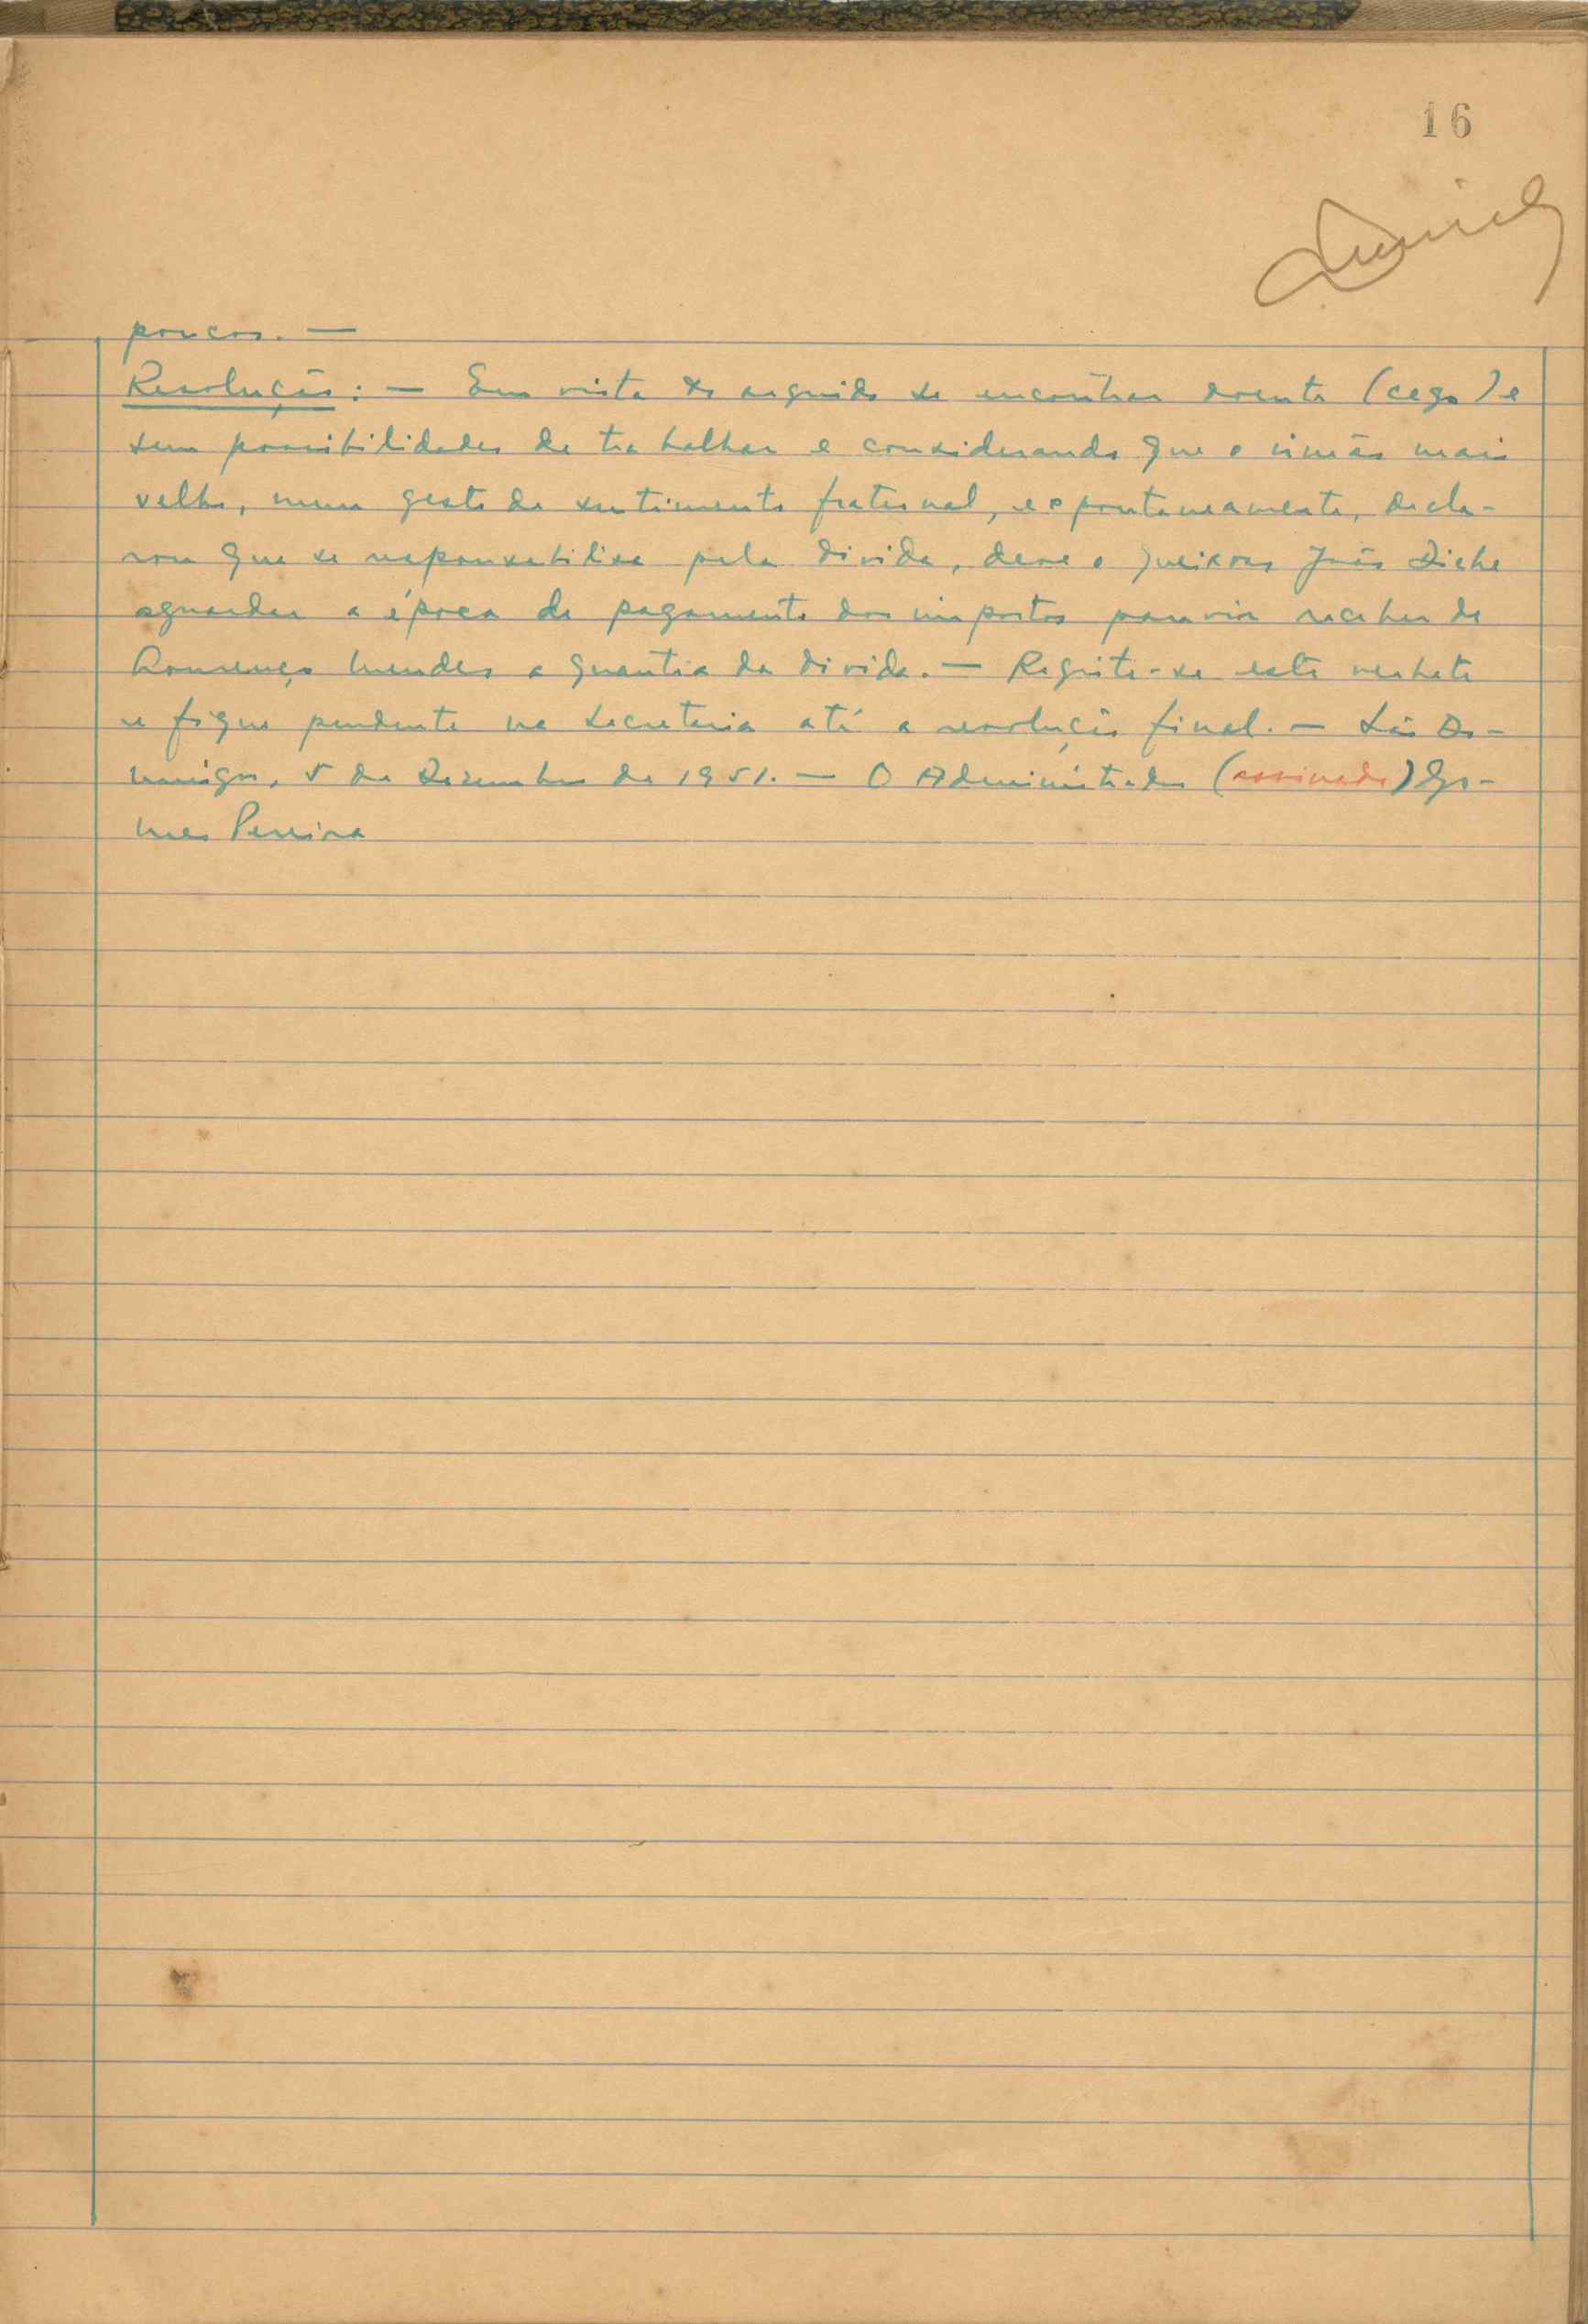 16
poucos. —
Resolução: — Em vista do arguido se encontrar doente (cego) e
sem possibilidades de trabalhar e considerando que o irmão mais
velho, num gesto de sentimento fraternal, espontaneamente, decla-
rou que se responsabilisa pela divida, deve o queixoso João
aguardar a época de pagamento dos impostos para vir receber de
Lourenço Mendes a quantia da divida. — Registe-se este verbete
e fique pendente na secretaria até a resolução final. — São Do-
mingos, 5 de Dezembro de 1951. — O Administrador (assinado) Go-
mes Pereira